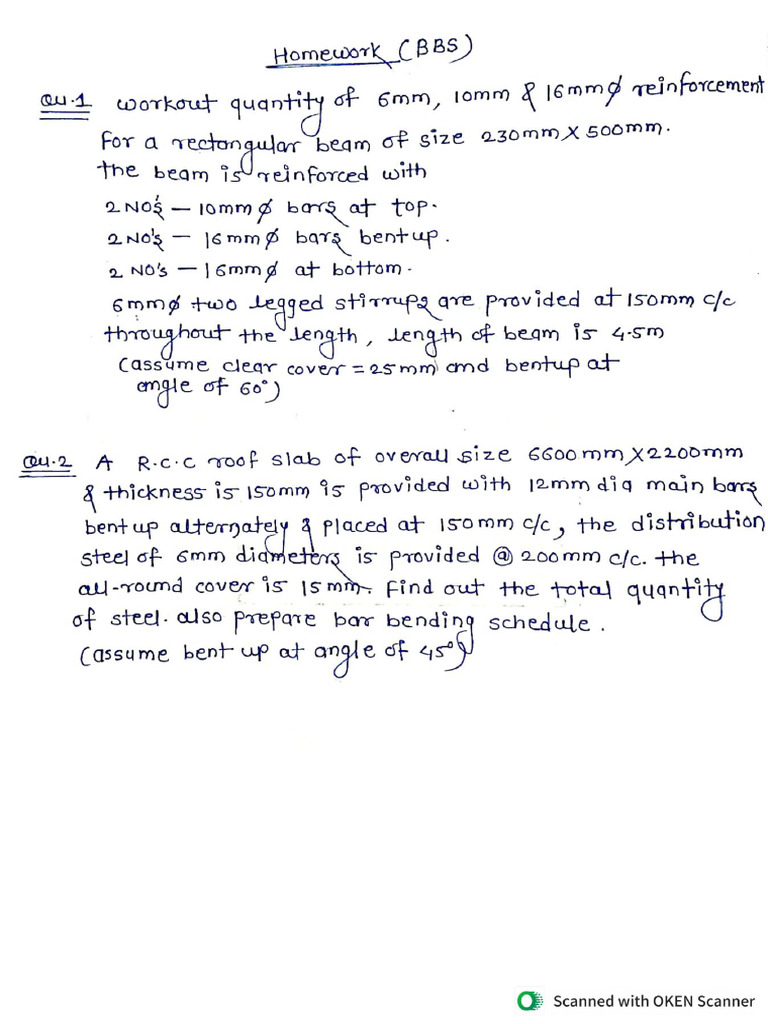 Homework (BBS)
Qu.1 Workout quantity of 6mm, 10mm & 16mmø reinforcement
For a rectongular beam of size 230mm X 500mm.
the beam is reinforced with
2 NO's — 10mmø bars at top.
2 NO's — 16mmø bars bentup.
2 NO's — 16mmø at bottom.
6mmø two legged stirrups are provided at 150mm c/c
throughout the length, length of beam is 4.5m
(assume clear cover = 25mm and bentup at
angle of 60°)
Qu.2 A R.C.C roof slab of overall size 6600mm X 2200mm
& thickness is 150mm is provided with 12mm dia main bars
bent up alternately & placed at 150mm c/c, the distribution
steel of 6mm diameters is provided @ 200mm c/c. the
all-round cover is 15mm. Find out the total quantity
of steel. also prepare bar bending schedule.
(assume bent up at angle of 45°)
Scanned with OKEN Scanner